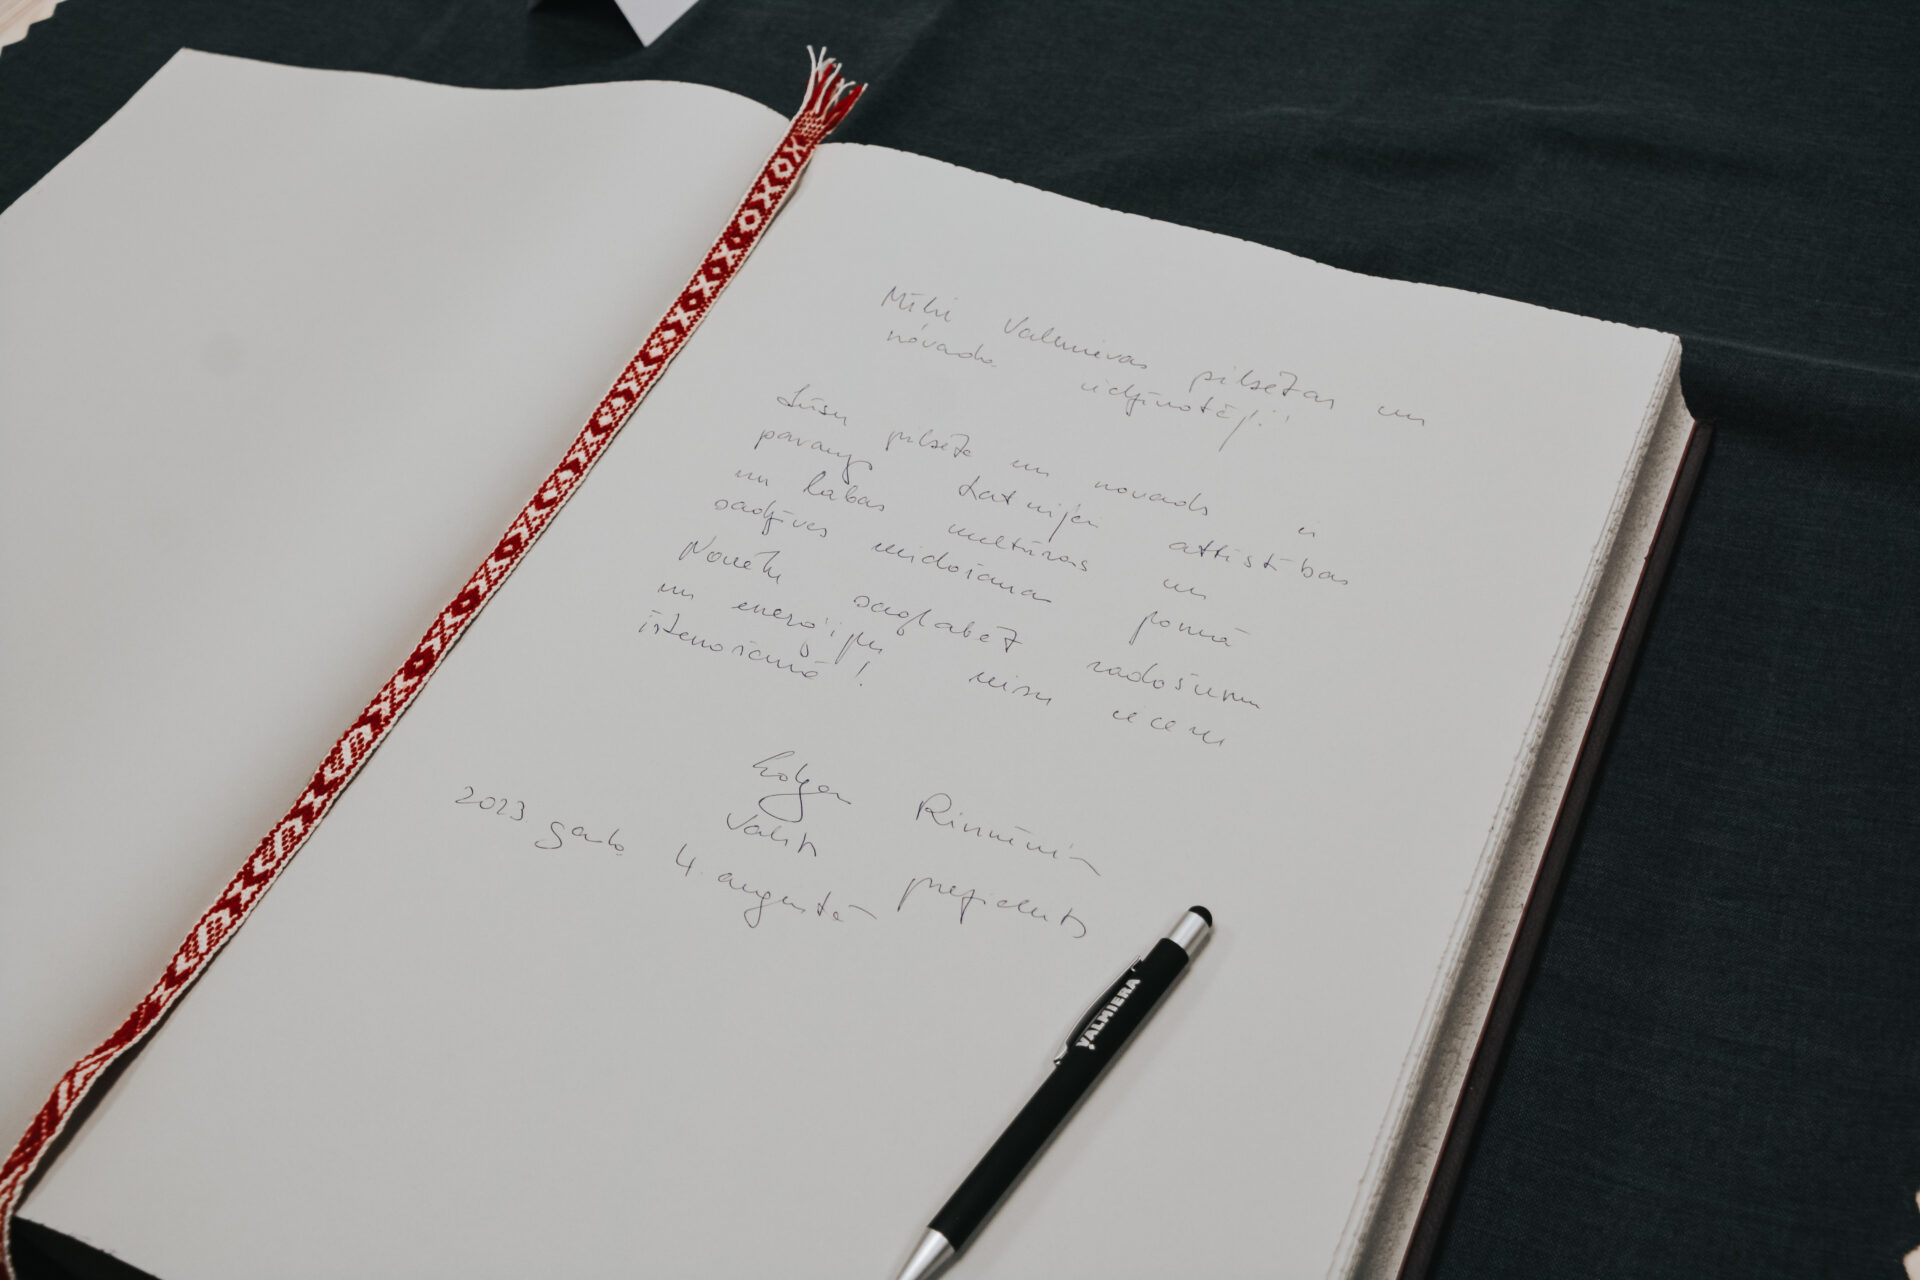 Mīļie Valmieras pilsētas un
novada iedzīvotāji!
Jūsu pilsēta un novads ir
paraugs Latvijai attīstības
un labas kultūras un
sadzīves veidošanas jomā
Novēlu saglabāt radošumu
un enerģiju visu ieceru
īstenošanā!
Edgars Rinkēvičs
Valsts prezidents
2023 gada 4. augustā
VALMIERA